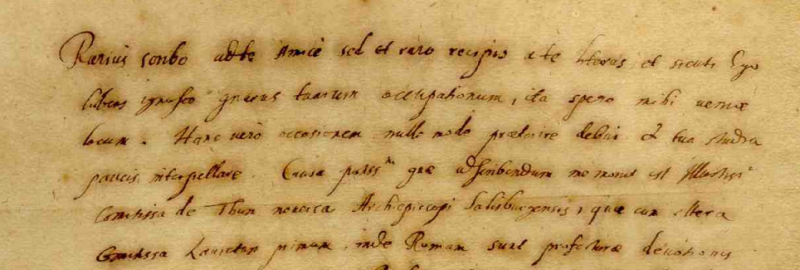 Rarius scribo ad te Amice sed et raro recipio a te literas, et sicuti Ego
lubens ignosco gnarus tuarum occupationum, ita spero mihi veniæ
locum. Hanc vero occasionem nullo modo præterire debui et tua studia
paucis interpellare. Causa quæ ad scribendum me movet est Illustriss.
Comitissa de Thun Archiepiscopi Salisburgensis, quæ cum altera
Comitissa Lauretum primum, inde Romam sunt profecturæ devotionis